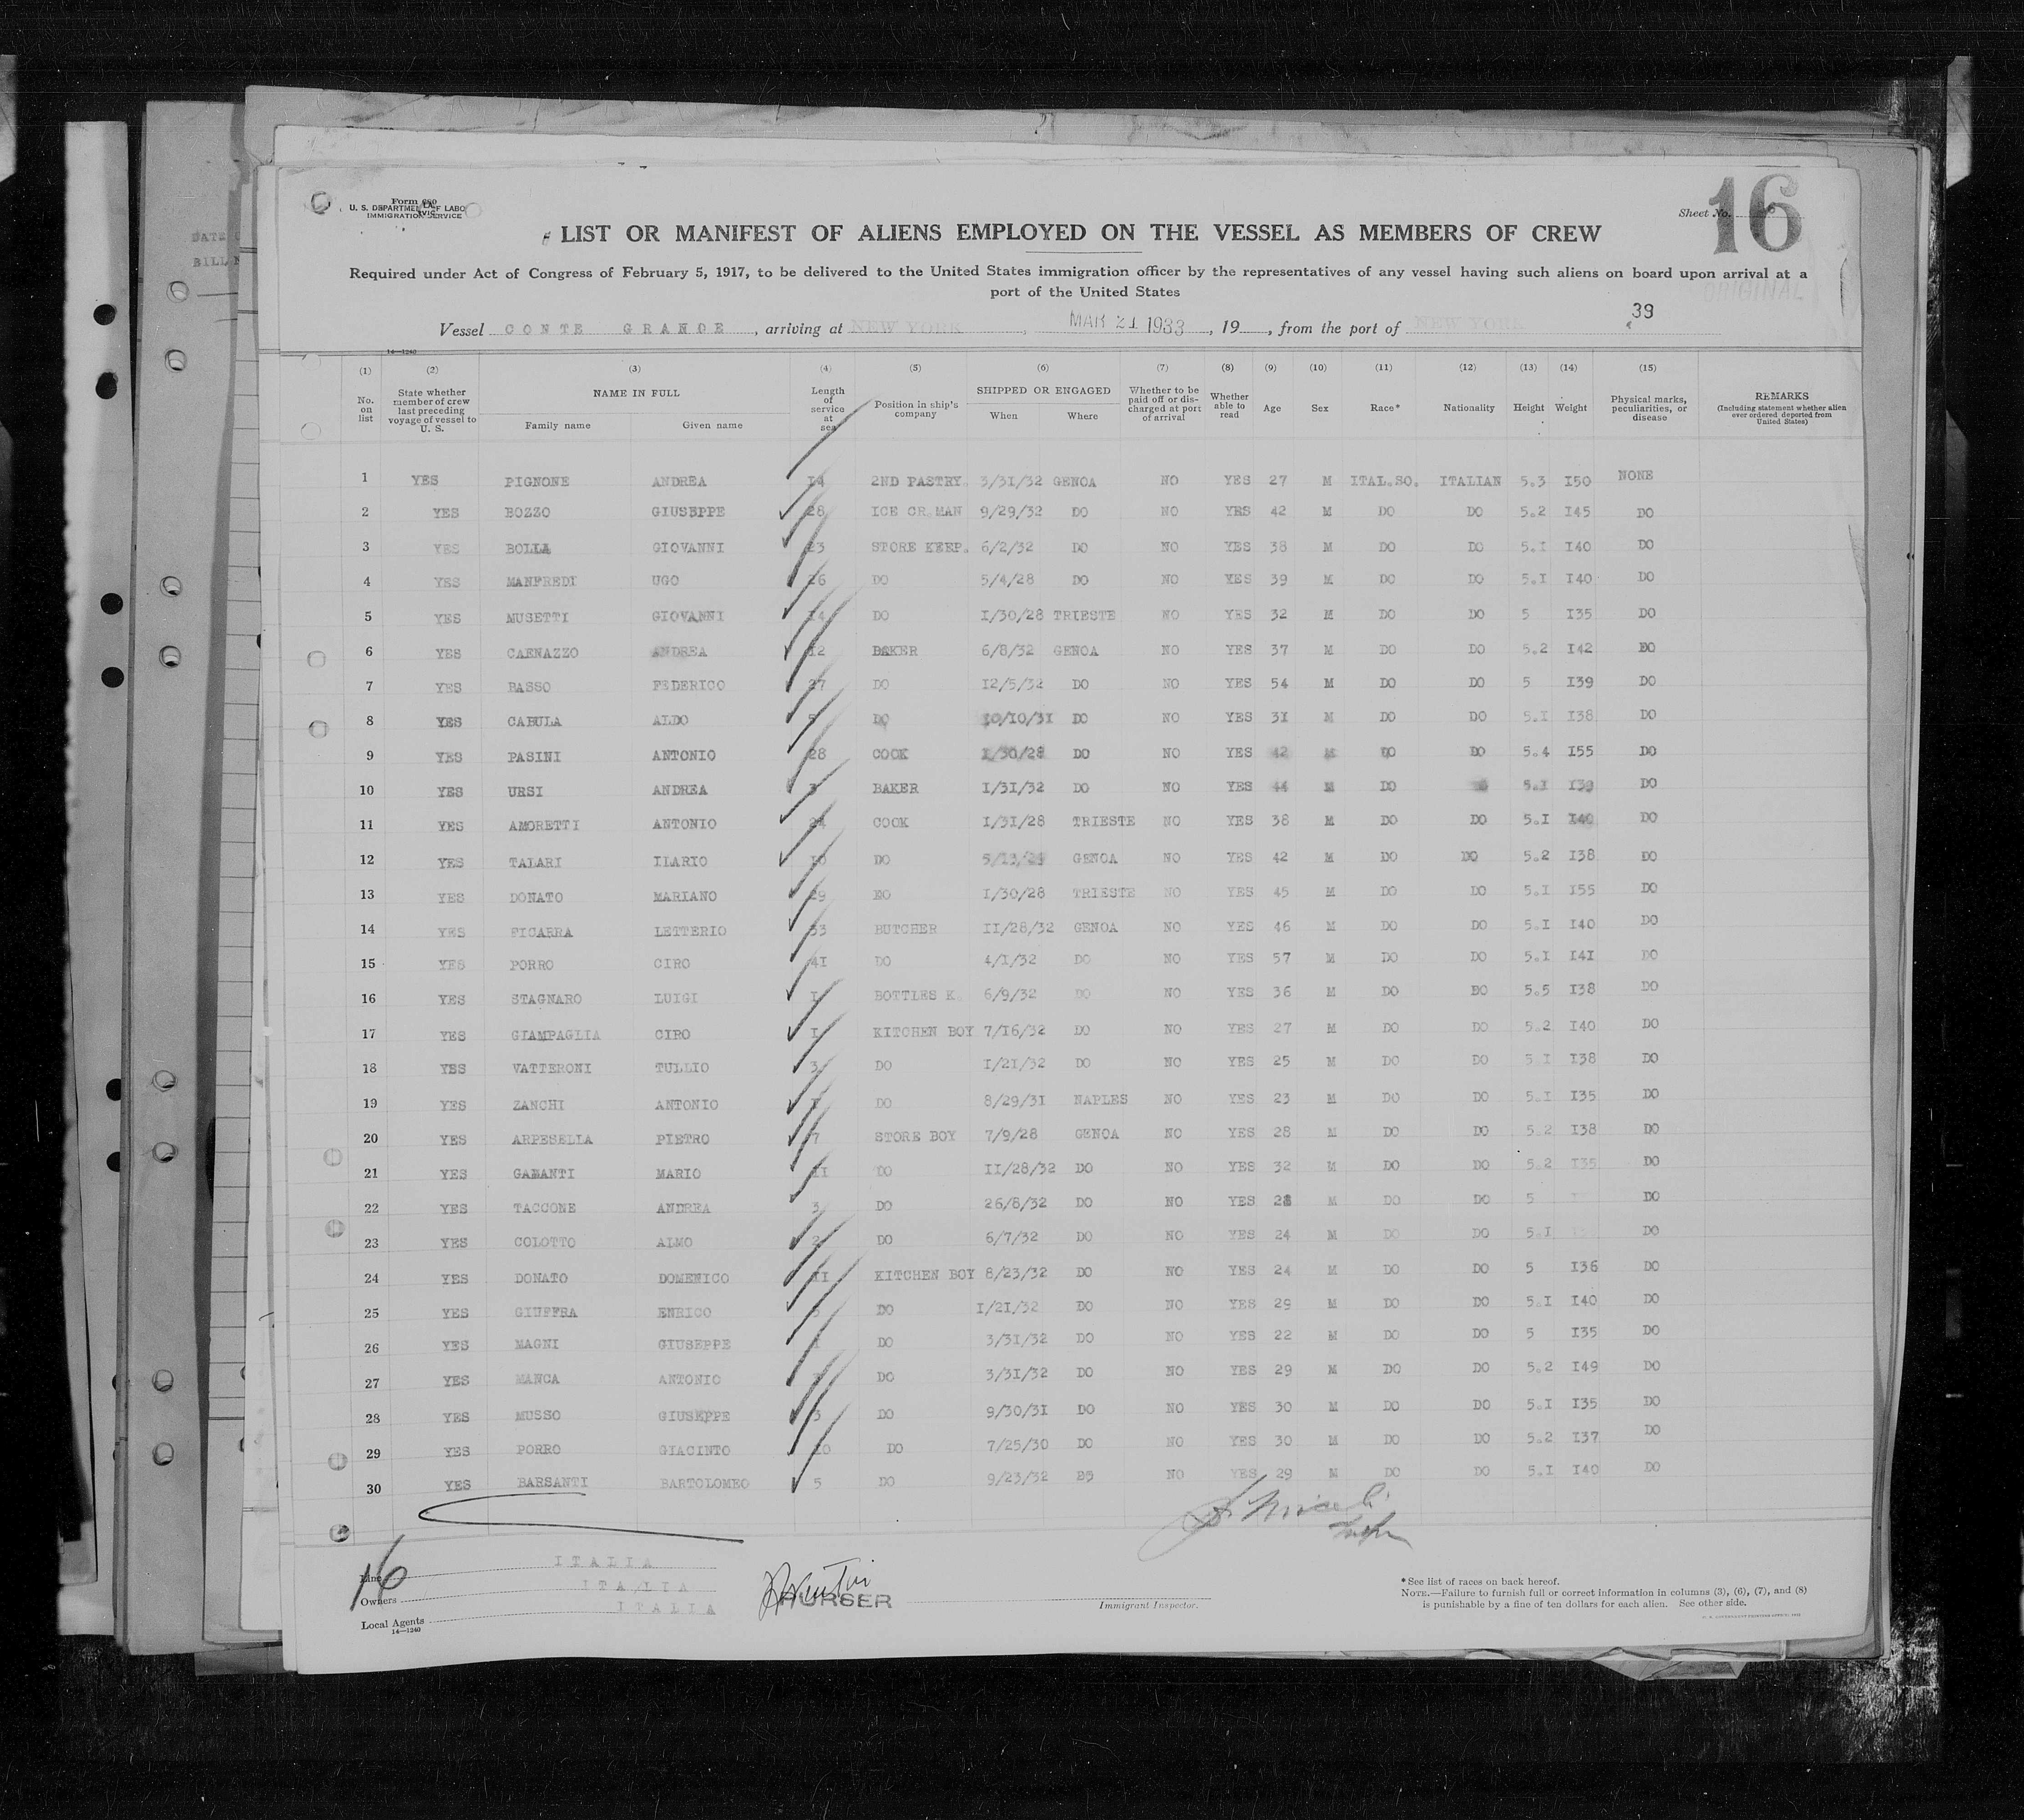 DATE
BILL N
Form 680
U. S. DEPARTMENT OF LABOR
IMMIGRATION SERVICE
Sheet No. 16
LIST OR MANIFEST OF ALIENS EMPLOYED ON THE VESSEL AS MEMBERS OF CREW
Required under Act of Congress of February 5, 1917, to be delivered to the United States immigration officer by the representatives of any vessel having such aliens on board upon arrival at a
port of the United States
ORIGINAL
39
Vessel CONTE GRANDE, arriving at NEW YORK, MAR 21 1933, 19, from the port of NEW YORK
14—1240
(1) (2) (3) (4) (5) (6) (7) (8) (9) (10) (11) (12) (13) (14) (15)
No. on list State whether member of crew last preceding voyage of vessel to U. S. NAME IN FULL Family name Given name Length of service at sea Position in ship's company SHIPPED OR ENGAGED When Where Whether to be paid off or discharged at port of arrival Whether able to read Age Sex Race* Nationality Height Weight Physical marks, peculiarities, or disease REMARKS (Including statement whether alien ever ordered deported from United States)
1 YES PIGNONE ANDREA 14 2ND PASTRY. 3/31/32 GENOA NO YES 27 M ITAL.SO. ITALIAN 5.3 150 NONE
2 YES BOZZO GIUSEPPE 28 ICE CR.MAN 9/29/32 DO NO YRS 42 M DO DO 5.2 145 DO
3 YES BOLLA GIOVANNI 23 STORE KEEP. 6/2/32 DO NO YES 38 M DO DO 5.1 140 DO
4 YES MANFREDI UGO 26 DO 5/4/28 DO NO YES 39 M DO DO 5.1 140 DO
5 YES MUSETTI GIOVANNI 14 DO 1/30/28 TRIESTE NO YES 32 M DO DO 5 135 DO
6 YES CARNAZZO ANDREA 12 BAKER 6/8/32 GENOA NO YES 37 M DO DO 5.2 142 DO
7 YES BASSO FEDERICO 27 DO 12/5/32 DO NO YES 54 M DO DO 5 139 DO
8 YES CABULA ALDO 5 DO 10/10/31 DO NO YES 31 M DO DO 5.1 138 DO
9 YES PASINI ANTONIO 28 COOK 1/30/28 DO NO YES 42 M DO DO 5.4 155 DO
10 YES URSI ANDREA BAKER 1/31/32 DO NO YES 44 M DO 5.1 139 DO
11 YES AMORETTI ANTONIO 24 COOK 1/31/28 TRIESTE NO YES 38 M DO DO 5.1 140 DO
12 YES TALARI ILARIO 10 DO GENOA NO YES 42 M DO DO 5.2 138 DO
13 YES DONATO MARIANO 29 DO 1/30/28 TRIESTE NO YES 45 M DO DO 5.1 155 DO
14 YES FICARRA LETTERIO 33 BUTCHER 11/28/32 GENOA NO YES 46 M DO DO 5.1 140 DO
15 YES PORRO CIRO 41 DO 4/1/32 DO NO YES 57 M DO DO 5.1 141 DO
16 YES STAGNARO LUIGI 1 BOTTLES K. 6/9/32 DO NO YES 36 M DO DO 5.5 138 DO
17 YES GIAMPAGLIA CIRO 1 KITCHEN BOY 7/16/32 DO NO YES 27 M DO DO 5.2 140 DO
18 YES VATTERONI TULLIO 3 DO 1/21/32 DO NO YES 25 M DO DO 5 1 138 DO
19 YES ZANCHI ANTONIO DO 8/29/31 NAPLES NO YES 23 M DO DO 5.1 135 DO
20 YES ARPESELLA PIETRO 7 STORE BOY 7/9/28 GENOA NO YES 28 M DO DO 5.2 138 DO
21 YES GAMANTI MARIO 11 DO 11/28/32 DO NO YES 32 M DO DO 5.2 135 DO
22 YES TACCONE ANDREA 3 DO 26/8/32 DO NO YES 28 M DO DO 5 DO
23 YES COLOTTO ALMO 2 DO 6/7/32 DO NO YES 24 M DO DO 5.1 DO
24 YES DONATO DOMENICO 11 KITCHEN BOY 8/23/32 DO NO YES 24 M DO DO 5 136 DO
25 YES GIUFFRA ENRICO DO 1/21/32 DO NO YES 29 M DO DO 5.1 140 DO
26 YES MAGNI GIUSEPPE 1 DO 3/31/32 DO NO YES 22 M DO DO 5 135 DO
27 YES MANCA ANTONIO DO 3/31/32 DO NO YES 29 M DO DO 5.2 149 DO
28 YES MUSSO GIUSEPPE 3 DO 9/30/31 DO NO YES 30 M DO DO 5.1 135 DO
29 YES PORRO GIACINTO 10 DO 7/25/30 DO NO YES 30 M DO DO 5.2 137 DO
30 YES BARSANTI BARTOLOMEO 5 DO 9/23/32 NO YES 29 M DO DO 5.1 140 DO
16
Line ITALIA
Owners ITALIA
Local Agents ITALIA
14—1240
PURSER
Immigrant Inspector.
*See list of races on back hereof.
NOTE.—Failure to furnish full or correct information in columns (3), (6), (7), and (8)
is punishable by a fine of ten dollars for each alien. See other side.